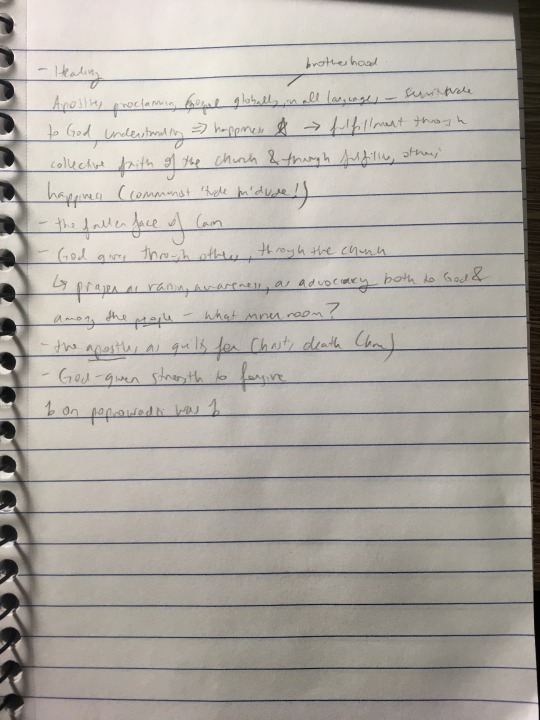 brotherhood
- Healing
Apostles proclaiming Gospel globally, in all languages, - servitude
to God, understanding => happiness → fulfillment through
collective faith of the church & through fulfilling others'
happiness (communist 'tude m'dude!)
- the fallen face of Cain
- God gives through others, through the church
↳ prayer as raising awareness, as advocacy both to God &
among the people - what inner room?
- the apostles as guilty for Christ's death (Cain)
- God-given strength to forgive
on poprowadzi was